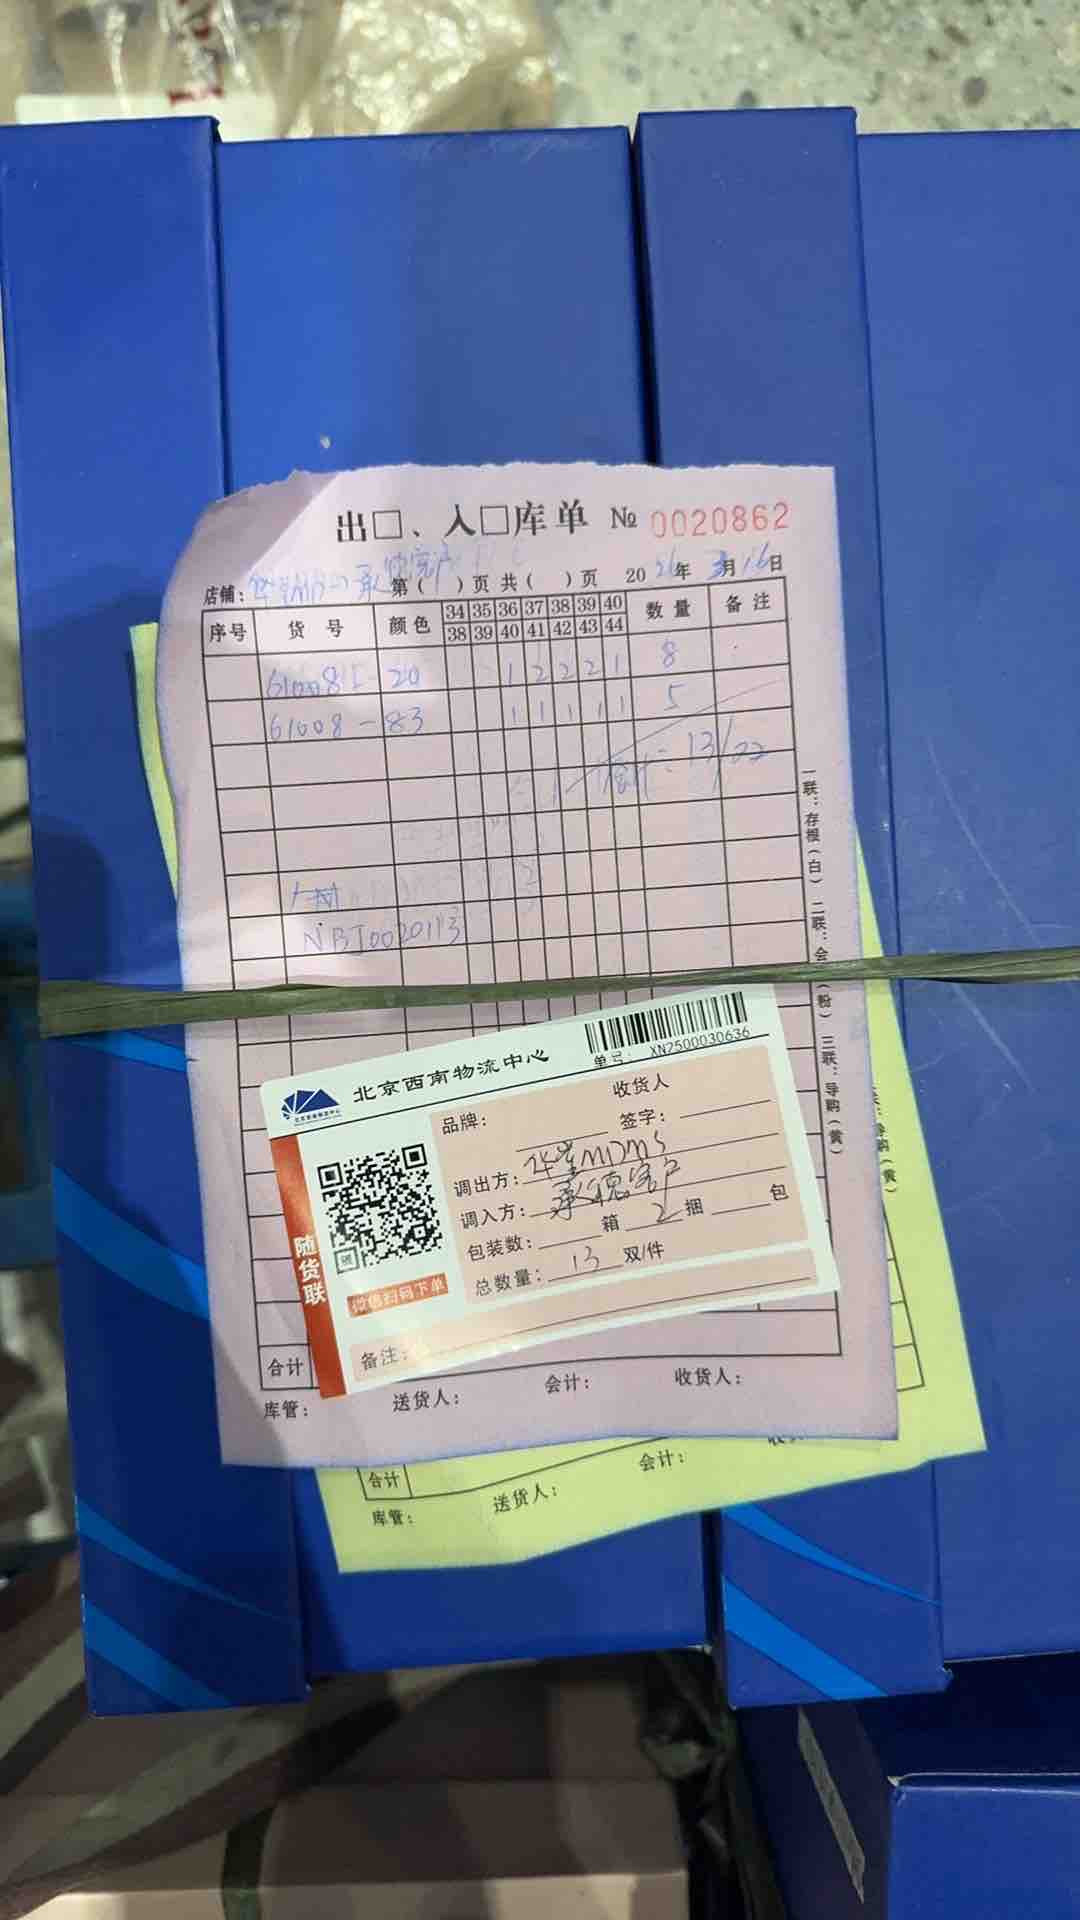 出□、入□库单 № 0020862
店铺: 承德客户 第( )页 共( )页 2026年3月16日
序号 货号 颜色 34 35 36 37 38 39 40 数量 备注
38 39 40 41 42 43 44
20 1 2 2 2 1 8
61008-83 1 1 1 1 1 5
合计: 13/22
NBJ0020113
一联:存根(白) 二联:会 (粉) 三联:导购(黄)
北京西南物流中心
单号: XN7500030636
收货人
品牌: 签字:
调出方: 华堂
调入方: 承德客户
包装数: 箱 2 捆 包
总数量: 13 双/件
备注:
随货联
微信扫码下单
合计
库管: 送货人: 会计: 收货人:
合计
库管: 送货人: 会计:
导购(黄)